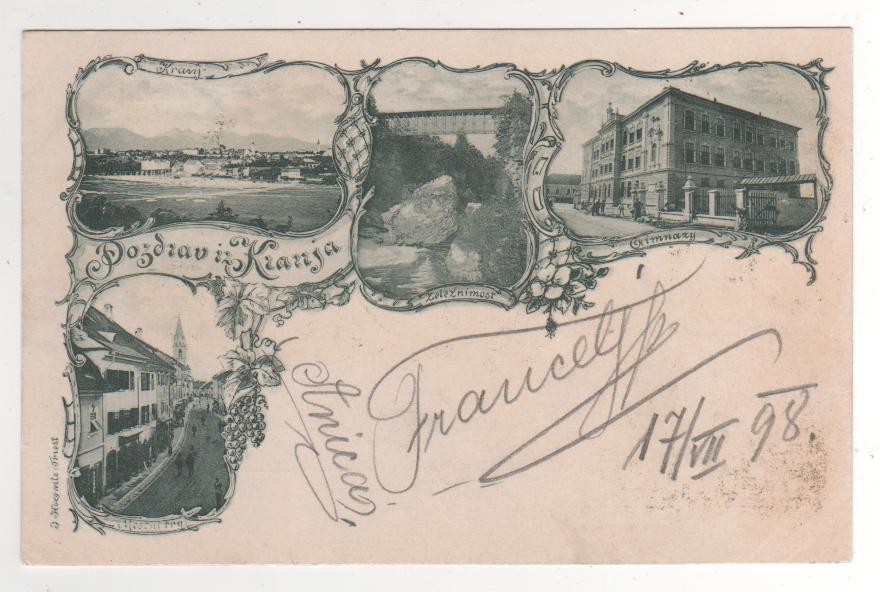 Kranj
Železni most
Gimnazy
Pozdrav iz Kranja
Mestni trg
Anica
Francelj
17/VII 98.